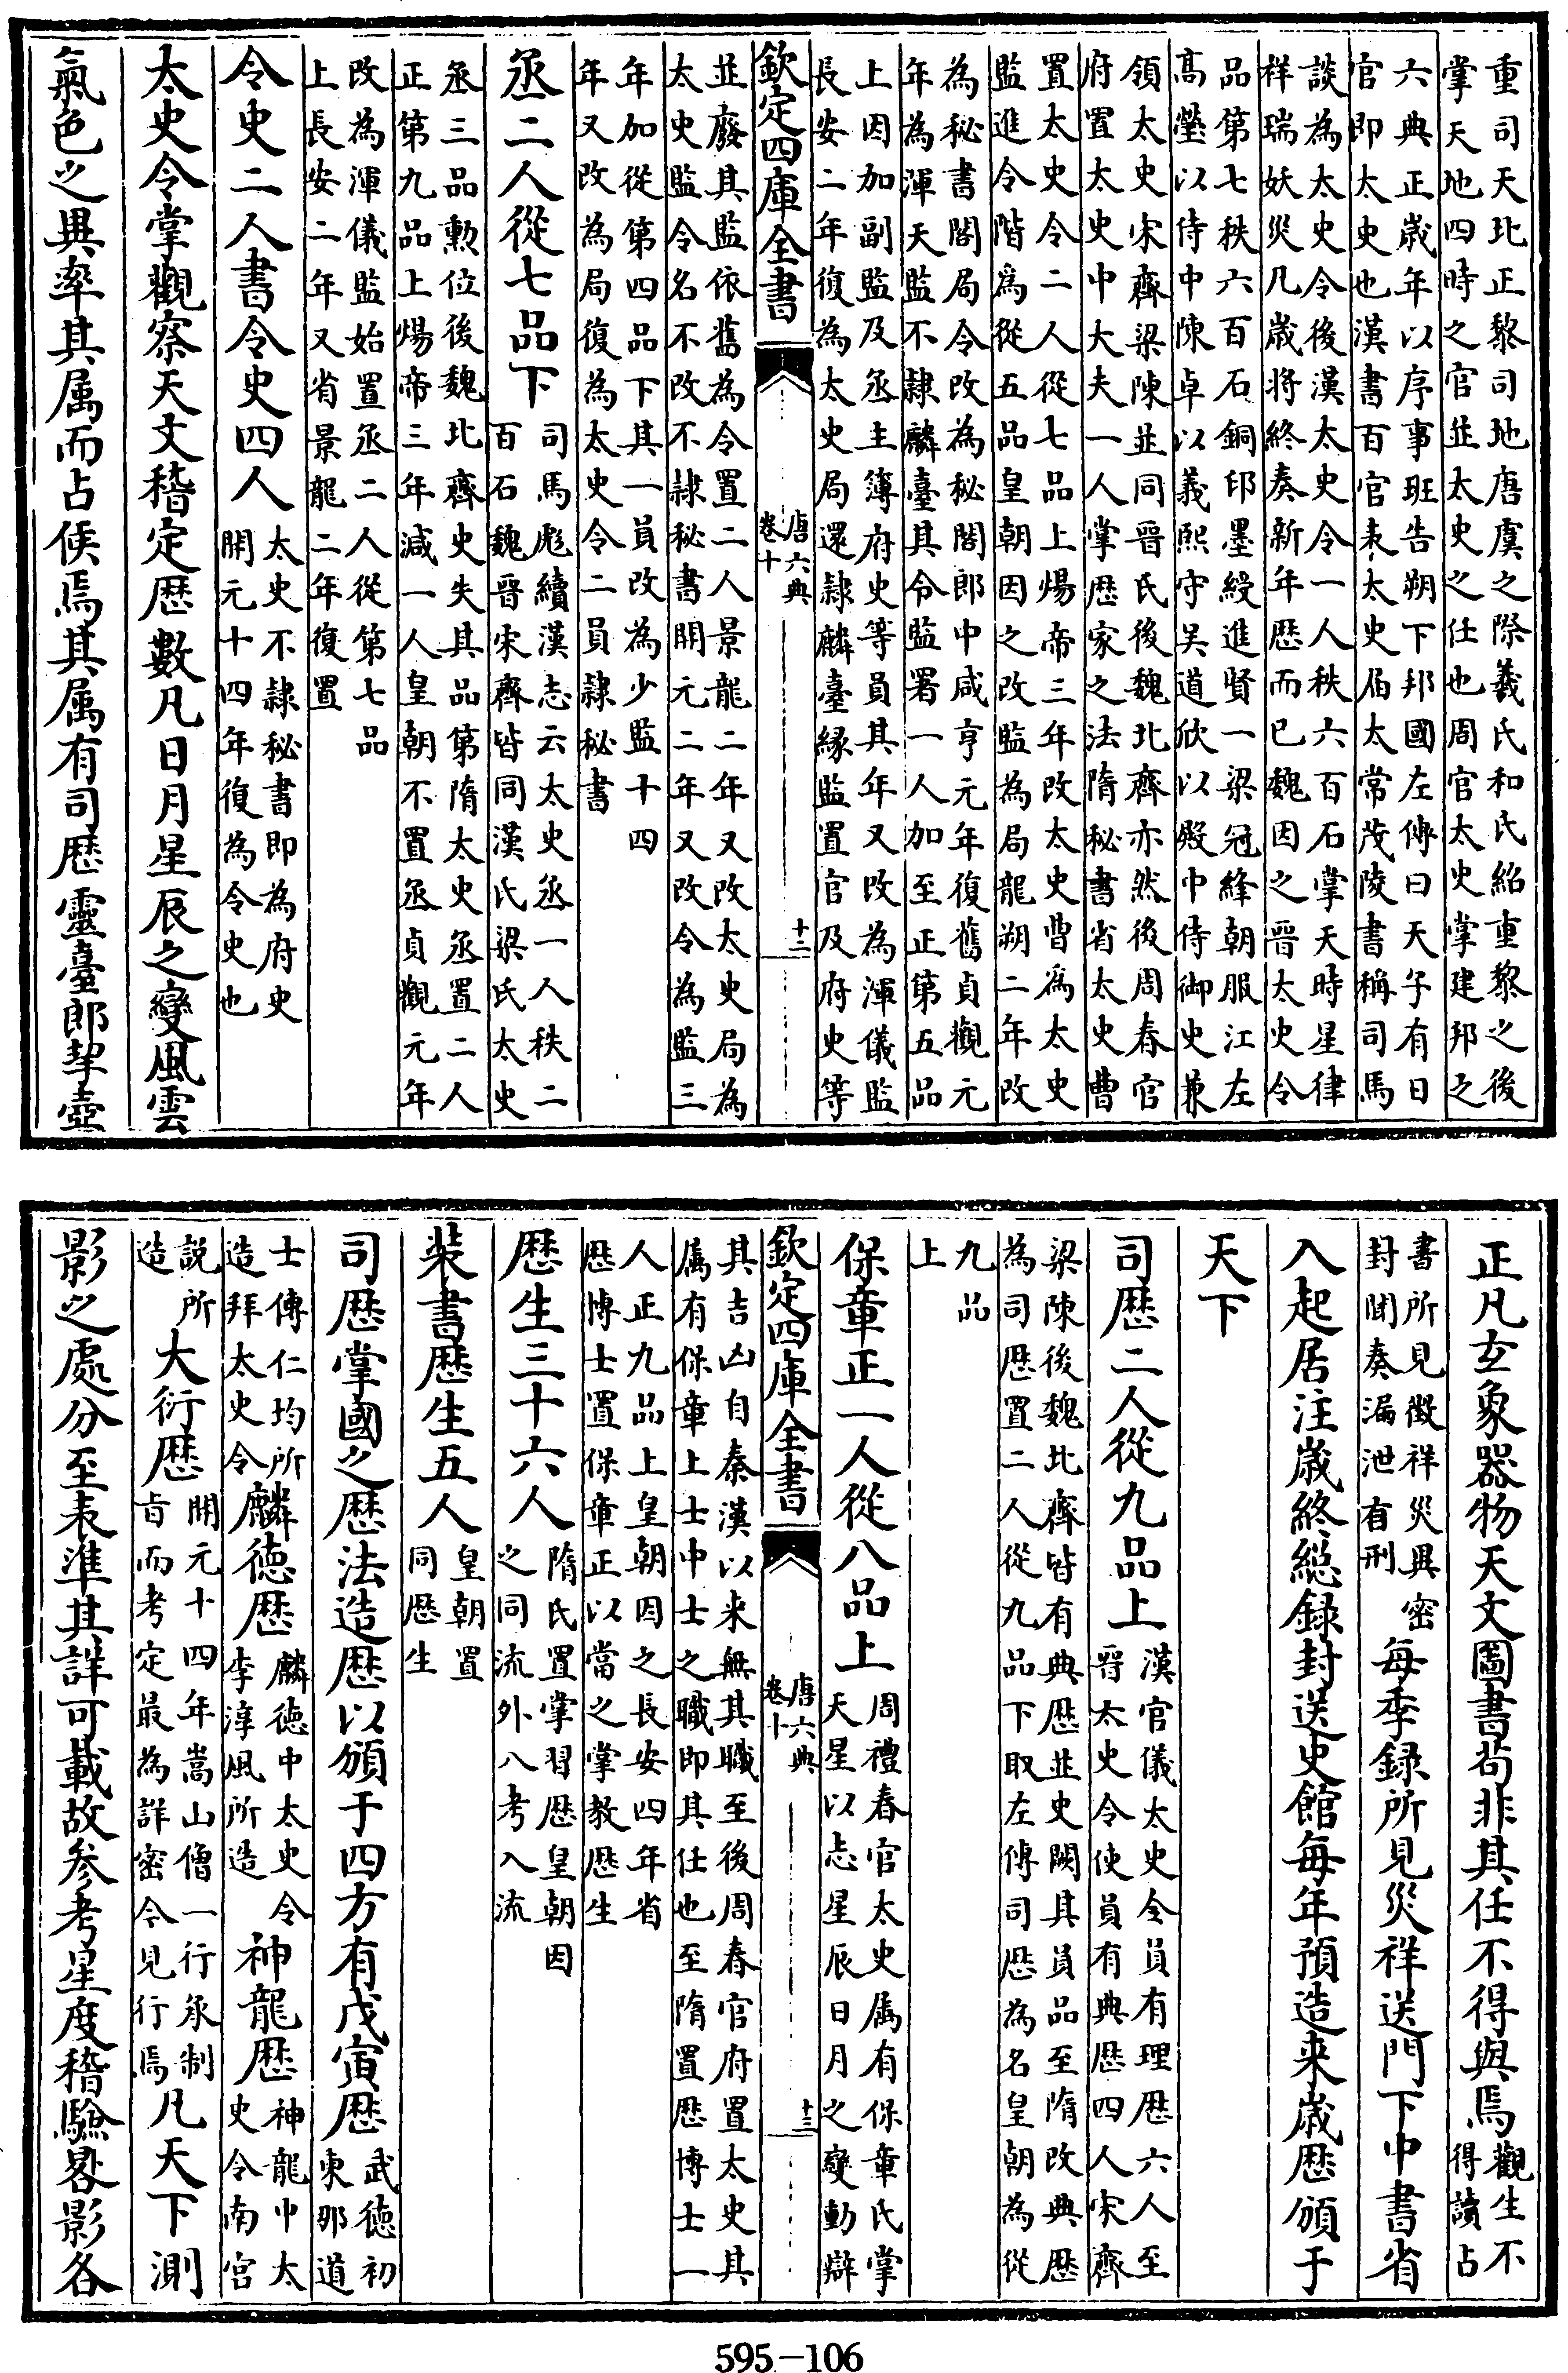 重司天北正黎司地唐虞之際羲氏和氏紹重黎之後
掌天地四時之官並太史之任也周官太史掌建邦之
六典正歲年以序事班告朔下邦國左傳曰天子有日
官即太史也漢書百官表太史屬太常茂陵書稱司馬
談為太史令後漢太史令一人秩六百石掌天時星律
祥瑞妖災凡歲將終奏新年歷而已魏因之晉太史令
品第七秩六百石銅印墨綬進賢一梁冠絳朝服江左
高瑩以侍中陳卓以義熙守吳道欣以殿中侍御史兼
領太史宋齊梁陳並同晉氏後魏北齊亦然後周春官
府置太史中大夫一人掌歷家之法隋秘書省太史曹
置太史令二人從七品上煬帝三年改太史曹為太史
監進令階為從五品皇朝因之改監為局龍朔二年改
為秘書閣局令改為秘閣郎中咸亨元年復舊貞觀元
年為渾天監不隸麟臺其令監署一人加至正第五品
上因加副監及丞主簿府史等員其年又改為渾儀監
長安二年復為太史局還隸麟臺緣監置官及府史等
欽定四庫全書
唐六典
卷十
十二
並廢其監依舊為令置二人景龍二年又改太史局為
太史監令名不改不隸秘書開元二年又改令為監三
年加從第四品下其一員改為少監十四
年又改為局復為太史令二員隸秘書
丞二人從七品下
司馬彪續漢志云太史丞一人秩二
百石魏晉宋齊皆同漢氏梁氏太史
丞三品勲位後魏北齊史失其品第隋太史丞置二人
正第九品上煬帝三年減一人皇朝不置丞貞觀元年
改為渾儀監始置丞二人從第七品
上長安二年又省景龍二年復置
令史二人書令史四人
太史不隸秘書即為府史
開元十四年復為令史也
太史令掌觀察天文稽定歷數凡日月星辰之變風雲
氣色之異率其属而占候焉其属有司歷靈臺郎挈壺
正凡玄象器物天文圖書苟非其任不得與焉
觀生不
得讀占
書所見徵祥災異密
封聞奏漏泄有刑
每季録所見災祥送門下中書省
入起居注歲終總録封送史館每年預造來歲歷頒于
天下
司歷二人從九品上
漢官儀太史令員有理歷六人至
晉太史令使員有典歷四人宋齊
梁陳後魏北齊皆有典歷並史闕其員品至隋改典歷
為司歷置二人從九品下取左傳司歷為名皇朝為從
九品
上
保章正一人從八品上
周禮春官太史属有保章氏掌
天星以志星辰日月之變動辯
欽定四庫全書
唐六典
卷十
十三
其吉凶自秦漢以來無其職至後周春官府置太史其
属有保章上士中士之職即其任也至隋置歷博士一
人正九品上皇朝因之長安四年省
歷博士置保章正以當之掌教歷生
歷生三十六人
隋氏置掌習歷皇朝因
之同流外八考入流
裝書歷生五人
皇朝置
同歷生
司歷掌國之歷法造歷以頒于四方有戊寅歷
武德初
東都道
士傅仁均所
造拜太史令
麟德歷
麟德中太史令
李淳風所造
神龍歷
神龍中太
史令南宮
說所
造
大衍歷
開元十四年嵩山僧一行承制
旨而考定最為詳密今見行焉
凡天下測
影之處分至表準其詳可載故參考星度稽驗晷影各
595-106